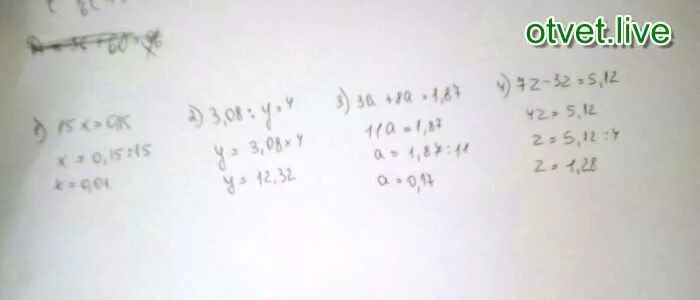 otvet.live
1) 15x = 0,15
x = 0,15 : 15
x = 0,01
2) 3,08 : y = 4
y = 3,08 × 4
y = 12,32
3) 3a + 8a = 1,87
11a = 1,87
a = 1,87 : 11
a = 0,17
4) 7z - 3z = 5,12
4z = 5,12
z = 5,12 : 4
z = 1,28